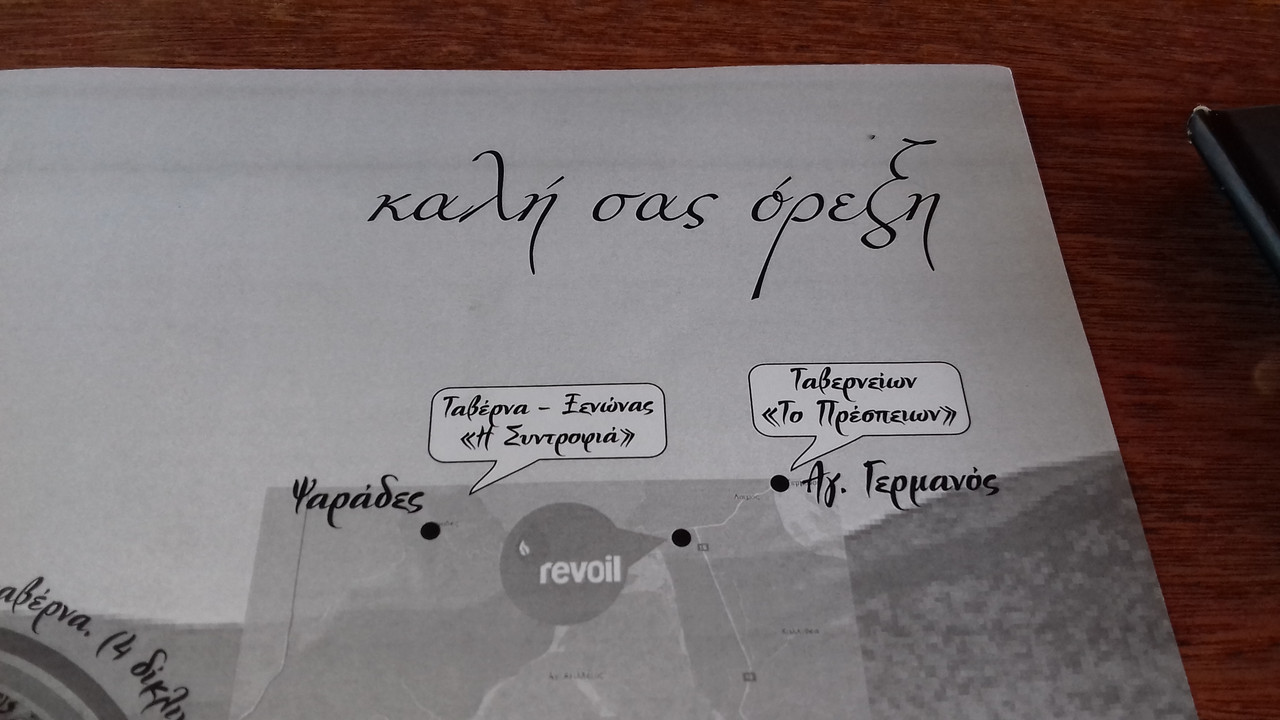 καλή σας όρεξη
Ταβέρνα - Ξενώνας
«Η Συντροφιά»
Ταβερνείων
«Το Πρέσπειων»
Ψαράδες
Αγ. Γερμανός
revoil
(4